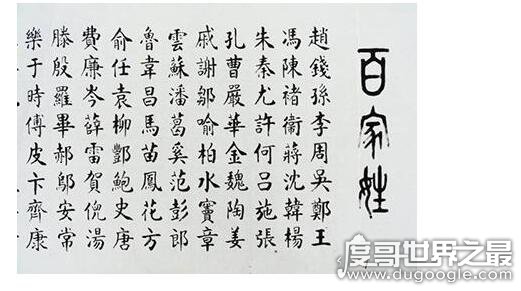 百家姓
趙錢孫李周吳鄭王
馮陳褚衞蔣沈韓楊
朱秦尤許何呂施張
孔曹嚴華金魏陶姜
戚謝鄒喻柏水竇章
雲蘇潘葛奚范彭郎
魯韋昌馬苗鳳花方
俞任袁柳酆鮑史唐
費廉岑薛雷賀倪湯
滕殷羅畢郝鄔安常
樂于時傅皮卞齊康
度哥世界之最
www.dugoogle.com